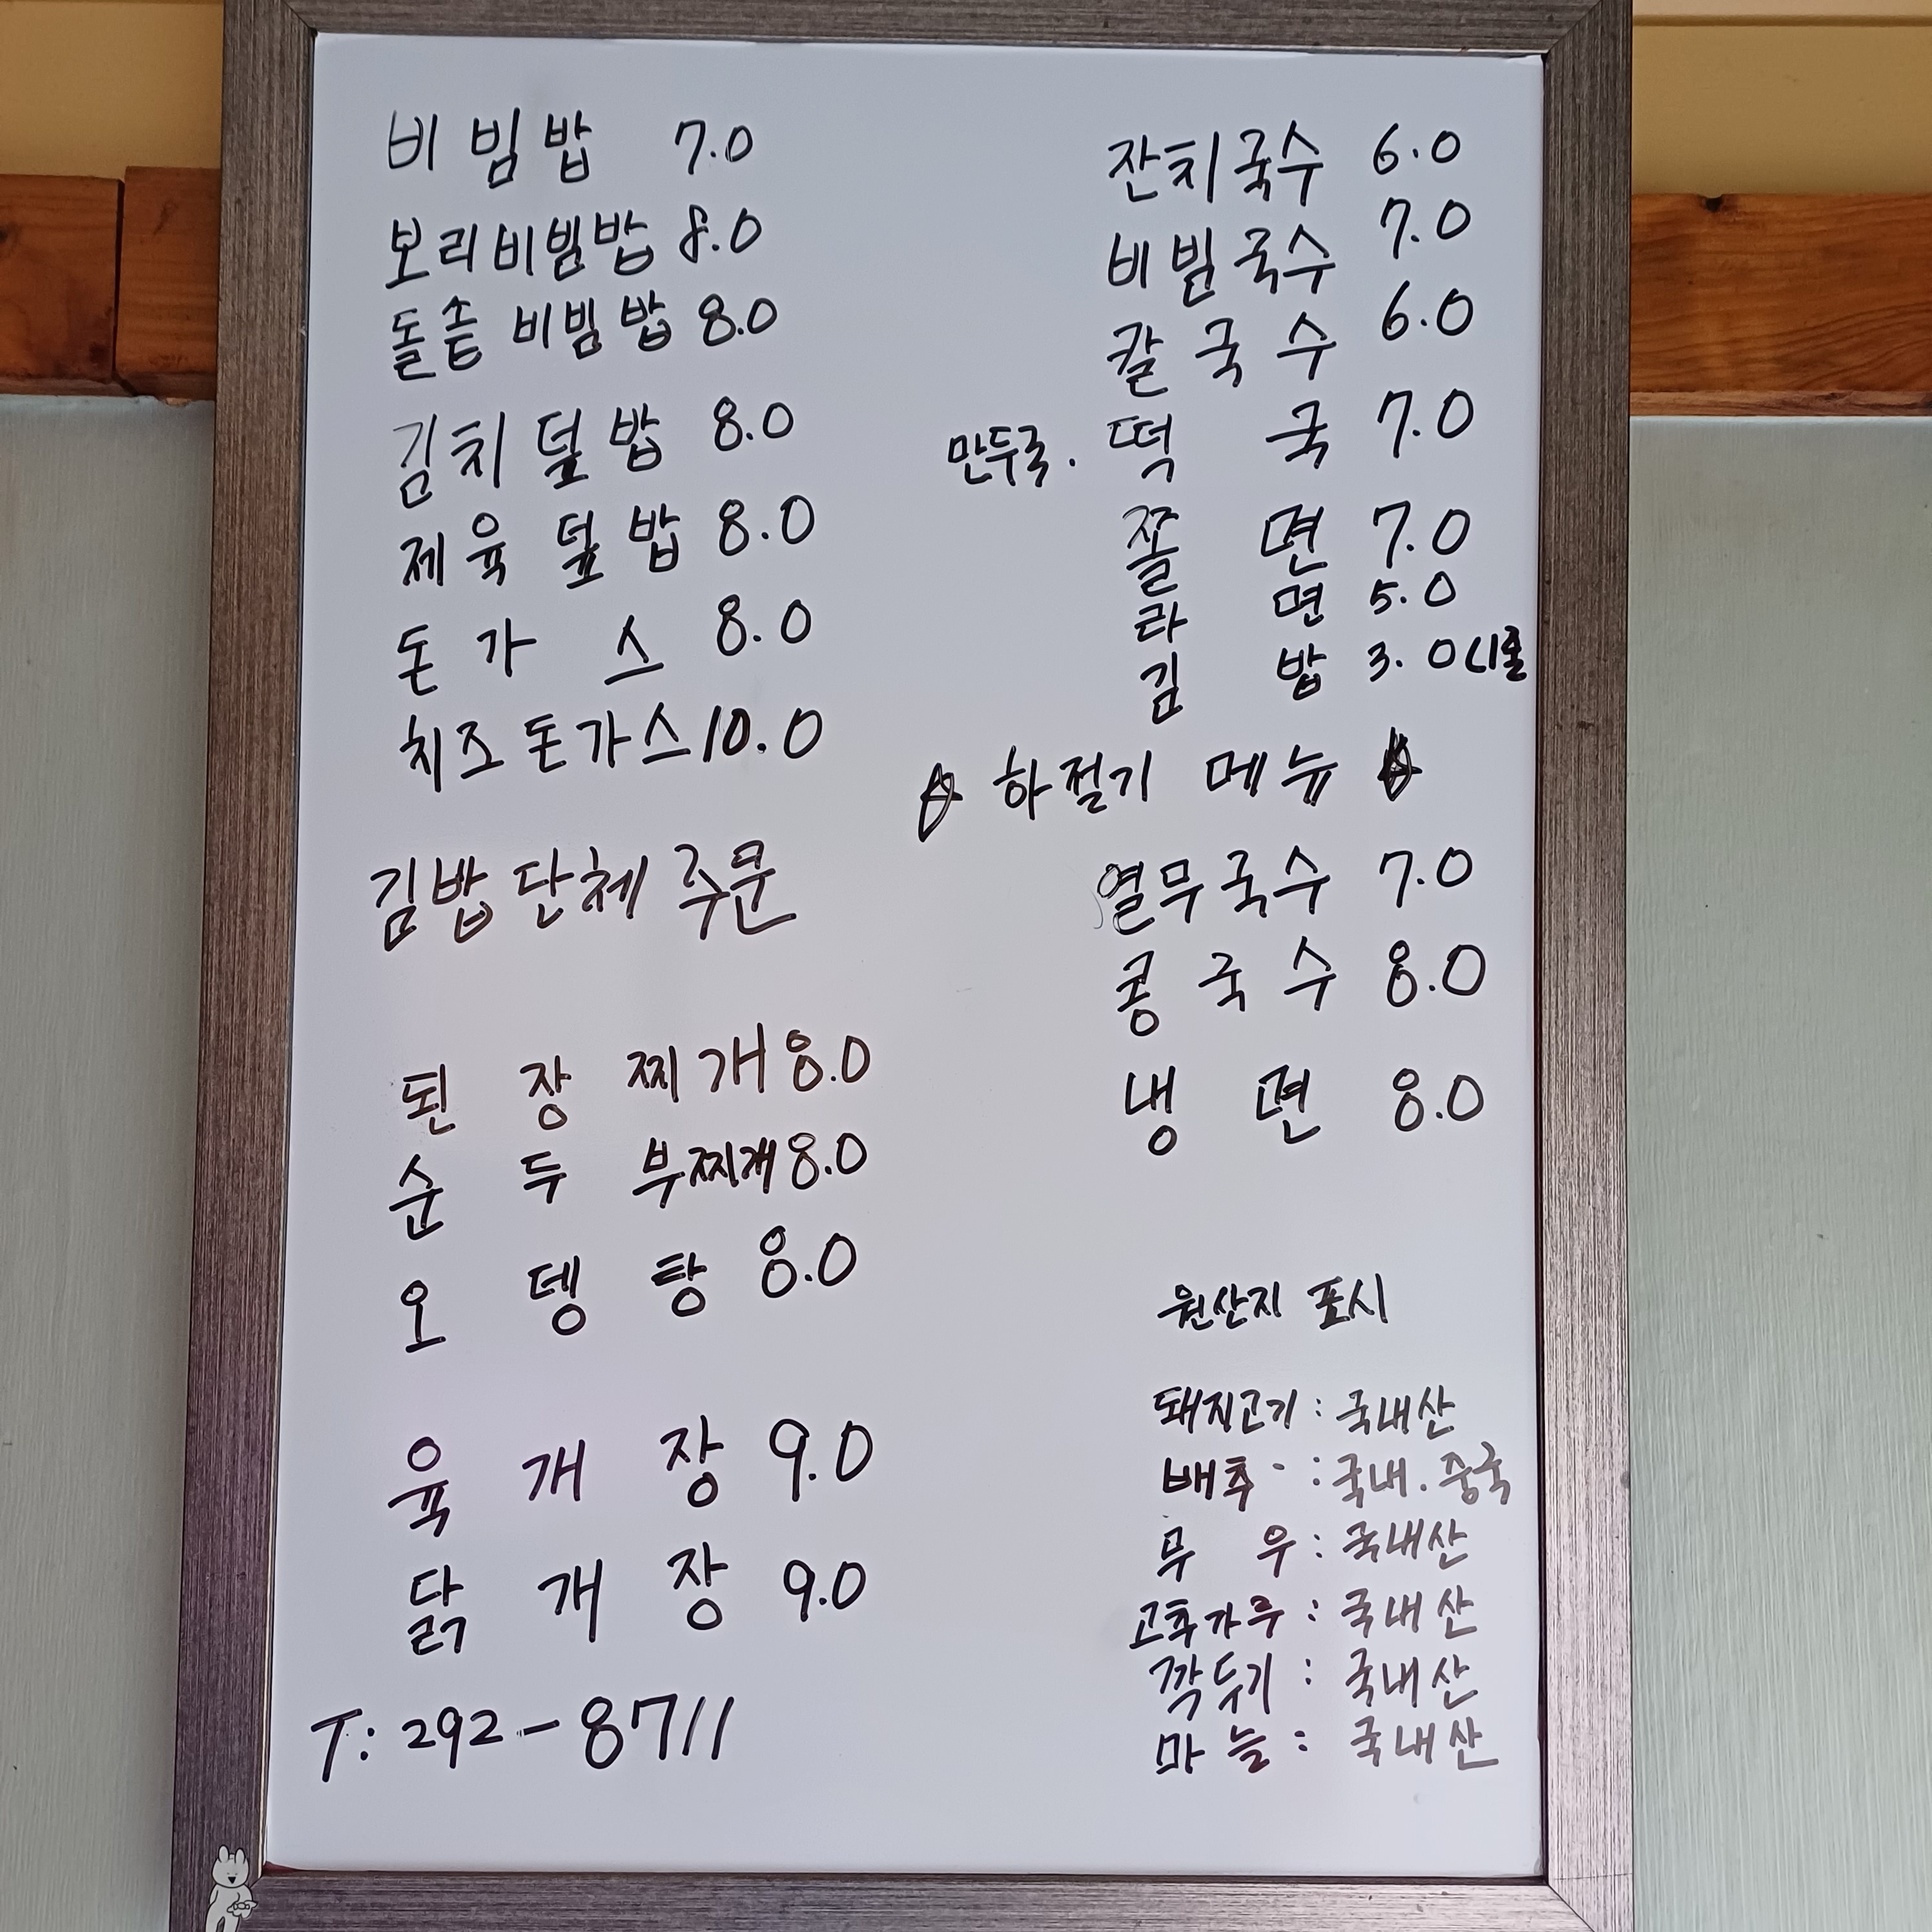 비빔밥 7.0
보리비빔밥 8.0
돌솥 비빔밥 8.0
김치덮밥 8.0
제육 덮밥 8.0
돈가스 8.0
치즈돈가스 10.0
김밥 단체 주문
된장찌개 8.0
순두부찌개 8.0
오뎅탕 8.0
육개장 9.0
닭개장 9.0
T: 292-8711
잔치국수 6.0
비빔국수 7.0
칼국수 6.0
만두국. 떡국 7.0
쫄면 7.0
라면 5.0
김밥 3.0 (1줄
☆ 하절기 메뉴 ☆
열무국수 7.0
콩국수 8.0
냉면 8.0
원산지 표시
돼지고기 : 국내산
배추 : 국내. 중국
무우 : 국내산
고추가루 : 국내산
깍두기 : 국내산
마늘 : 국내산